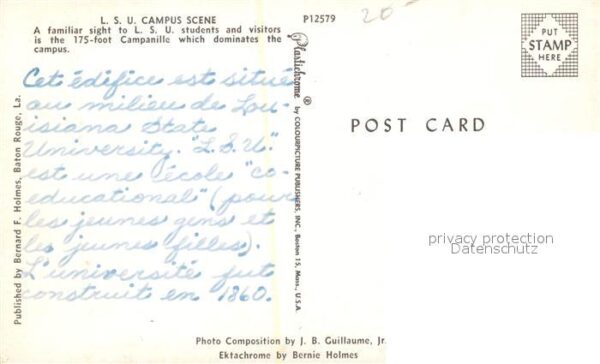 L. S. U. CAMPUS SCENE
A familiar sight to L. S. U. students and visitors
is the 175-foot Campanille which dominates the
campus.
P12579
20-
PUT
STAMP
HERE
Cet édifice est situé
au milieu de Lou-
isiana State
University. "L.S.U."
est une école "co-
educational" (pour
les jeunes gens et
les jeunes filles).
L'université fut
construit en 1860.
Published by Bernard F. Holmes, Baton Rouge, La.
Plastichrome ® by COLOURPICTURE PUBLISHERS, INC., Boston 15, Mass., U.S.A.
POST CARD
privacy protection
Datenschutz
Photo Composition by J. B. Guillaume, Jr.
Ektachrome by Bernie Holmes